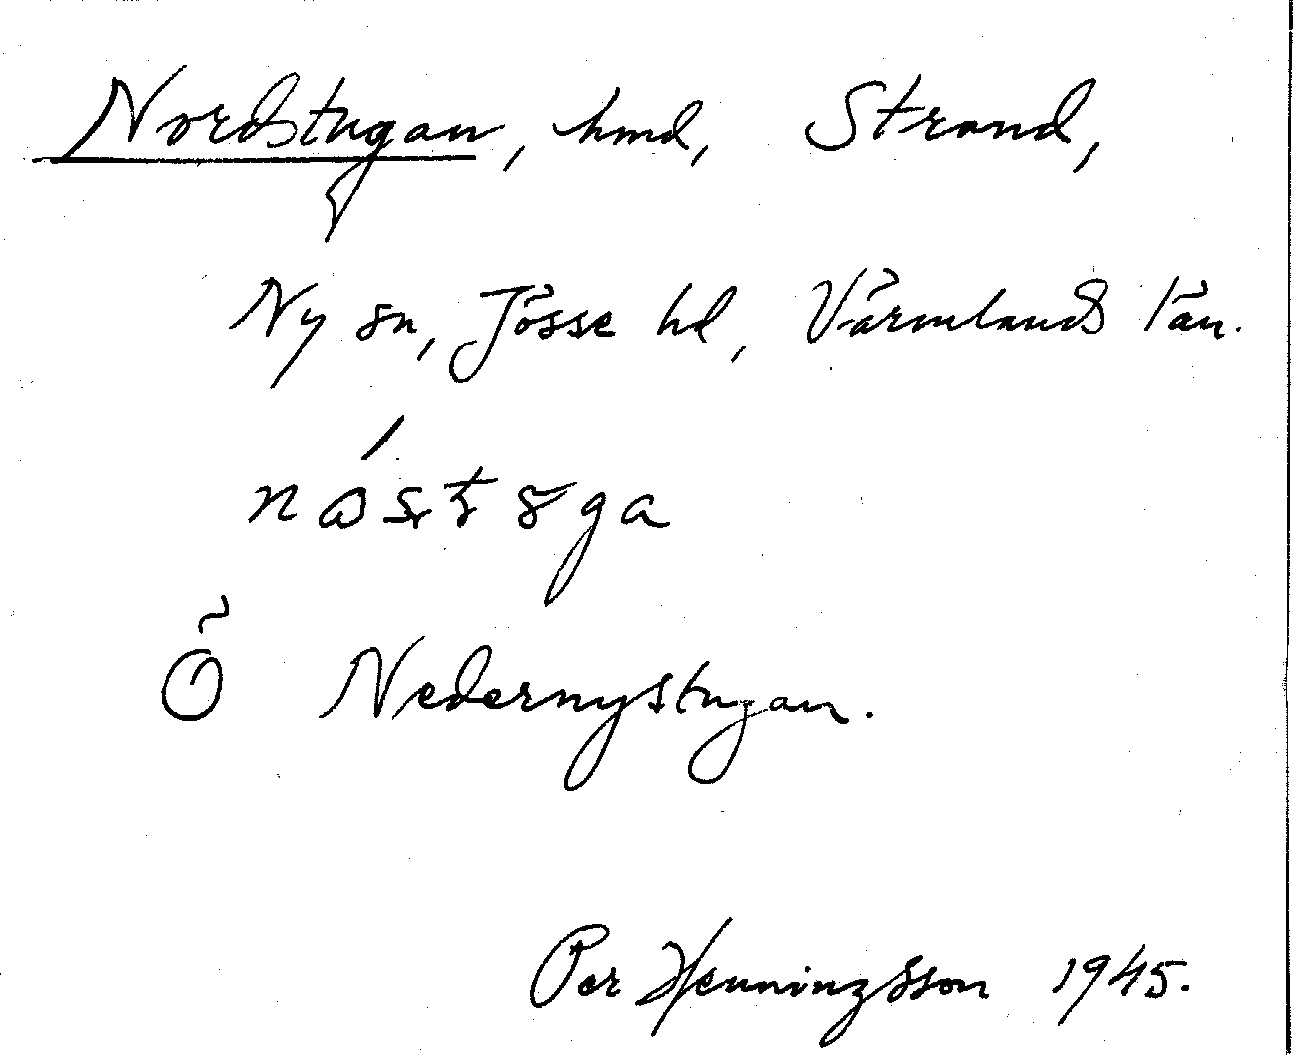 Nordstugan, hmd, Strand,
Ny sn, Jösse hd, Värmlands län.
Ö Nedernystugan.
Per Henningsson 1945.